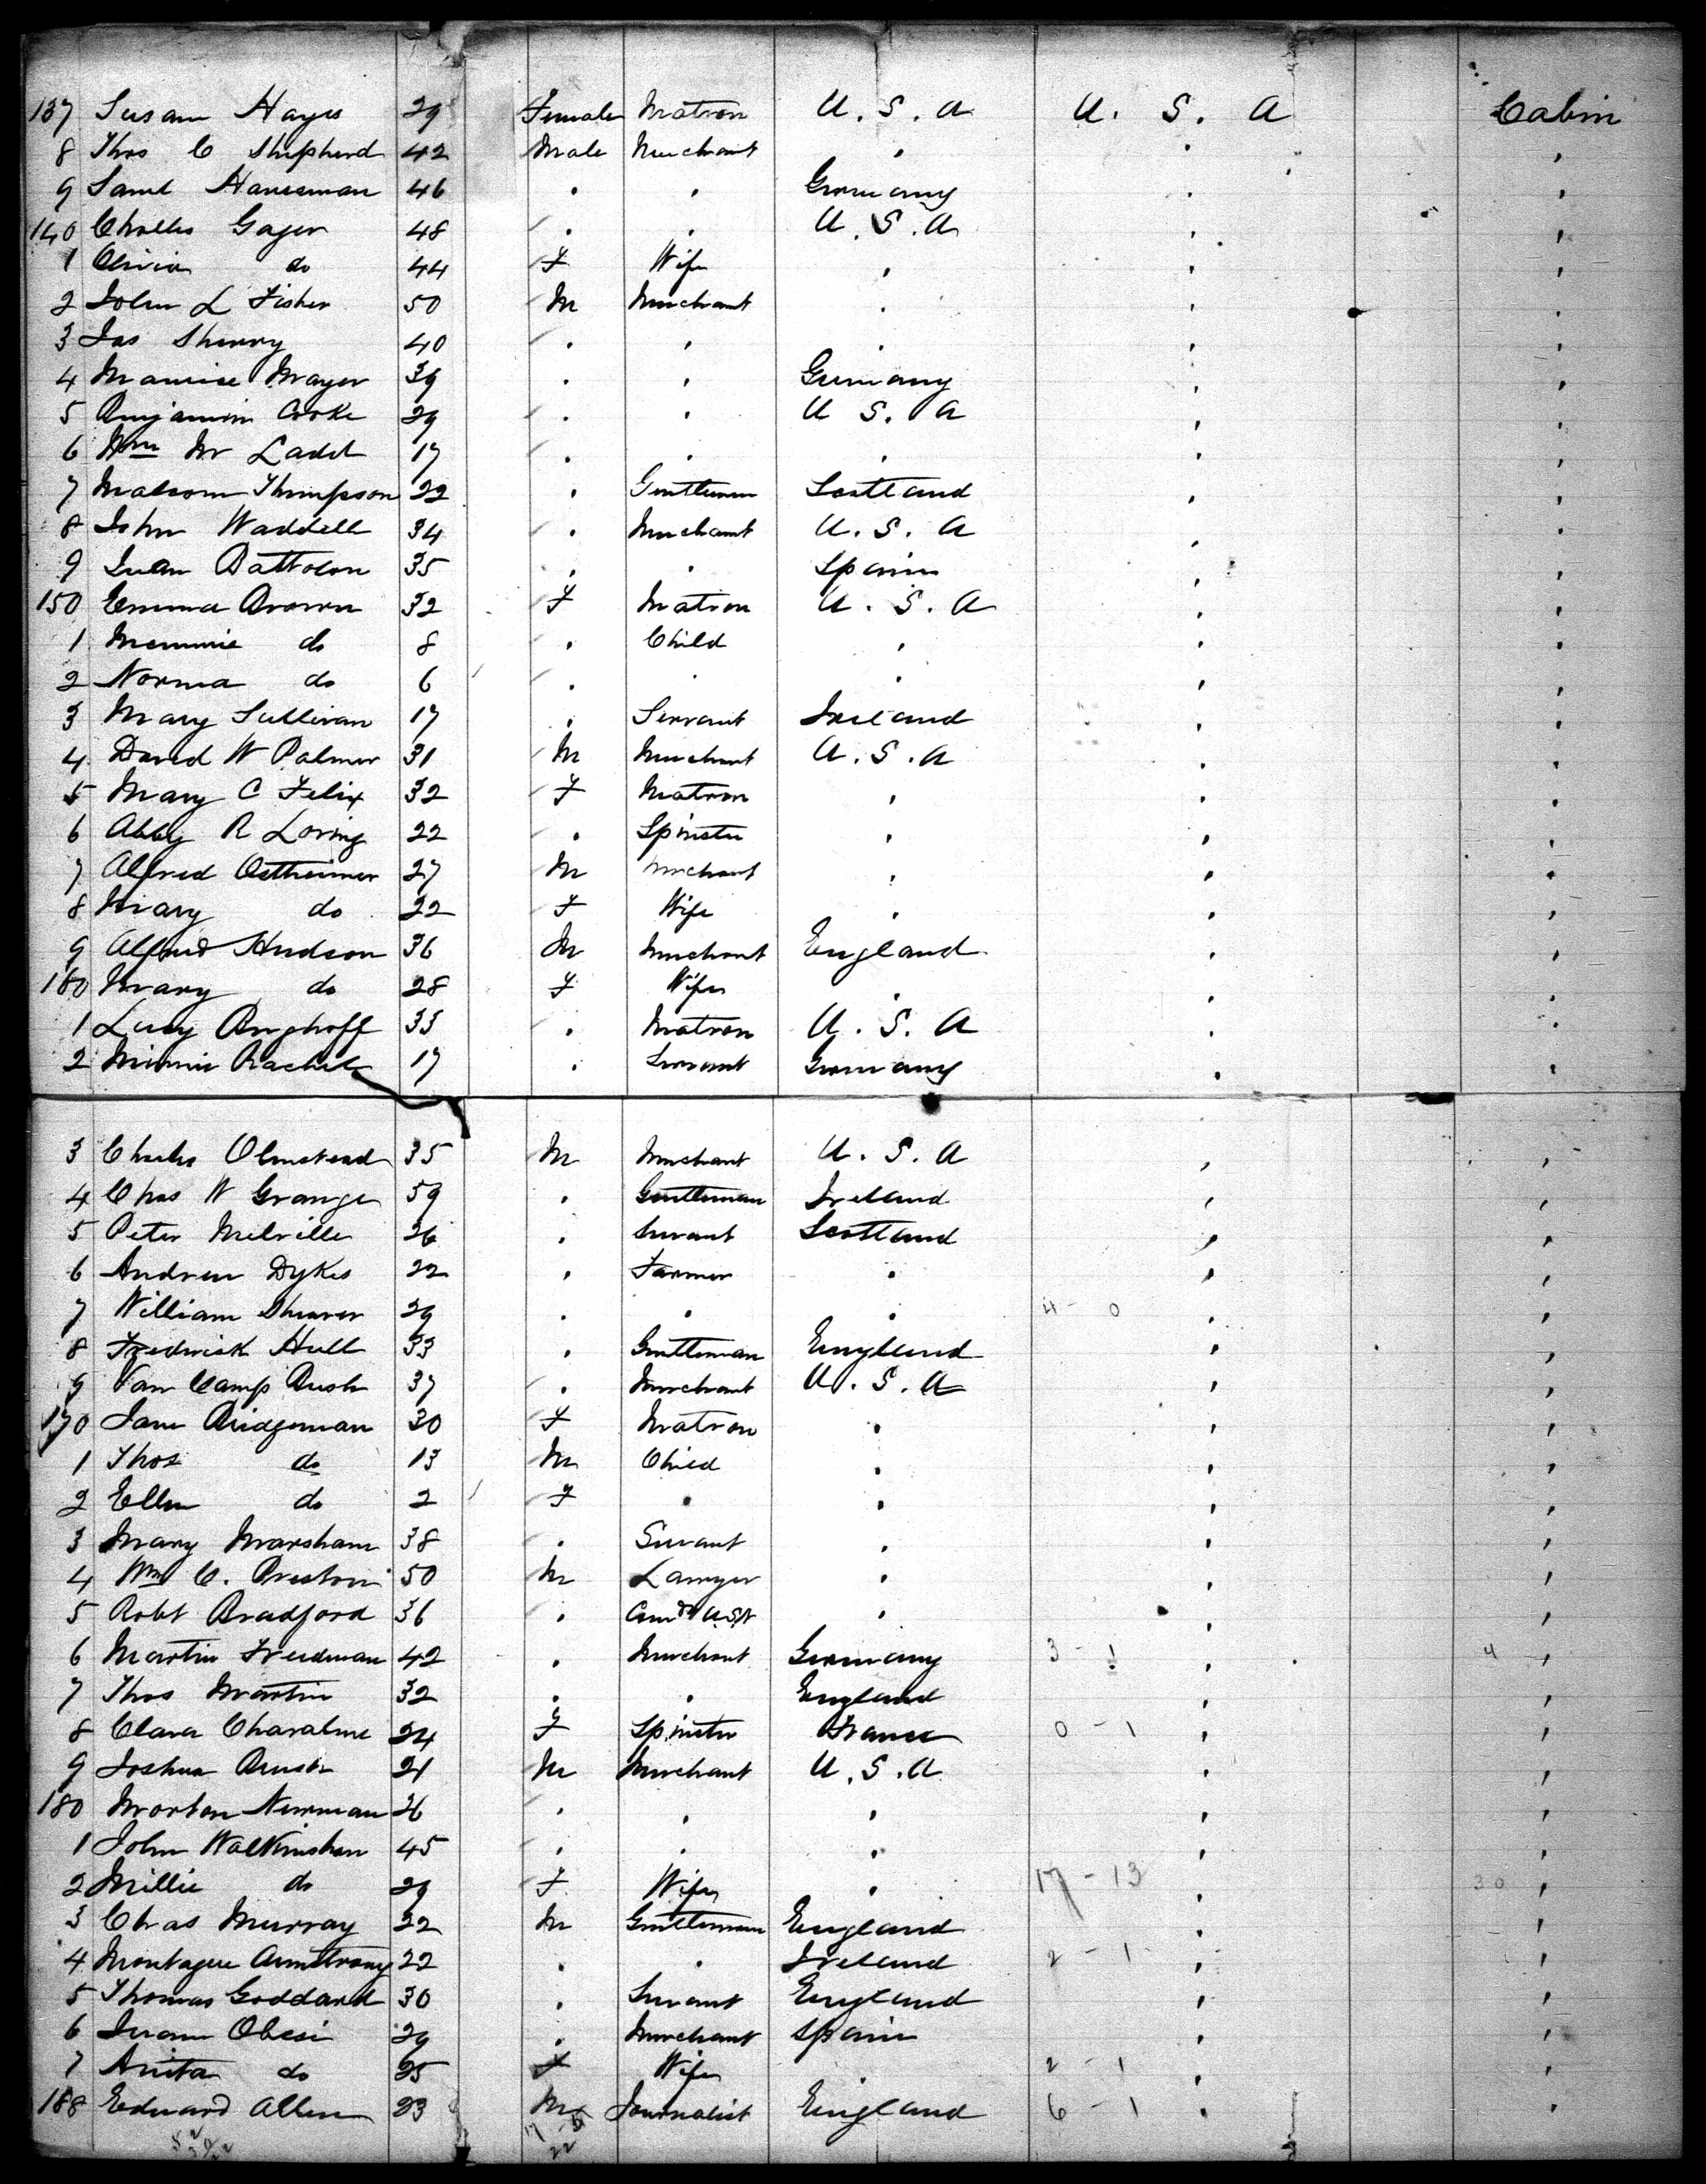 137 Susan Hayes 29 Female Matron U.S.A U.S.A Cabin
8 Thos C Shepherd 42 Male Merchant
9 Saml 46 Germany
140 Charles Gager 48 U.S.A
1 Olivia do 44 F Wife
2 John L Fisher 50 M Merchant
3 Jas Sherry 40
4 Maurice Mayer 39 Germany
5 Benjamin Cooke 29 U S. A
6 Wm M Ladd 17
7 Malcom Thompson 22 Gentleman Scotland
8 John Waddell 34 Merchant U.S.A
9 Juan 35 Spain
150 Emma Brown 32 F Matron U.S.A
1 Memmie do 8 Child
2 Norma do 6
3 Mary Sullivan 17 Servant Ireland
4 David W Palmer 31 M Merchant U.S.A
5 Mary C Felix 32 F Matron
6 Abby R Loring 22 Spinster
7 Alfred Ostheimer 27 M Merchant
8 Mary do 22 F Wife
9 Alfred Hudson 36 M Merchant England
160 Mary do 28 F Wife
1 Lucy Berghoff 33 Matron U.S.A
2 Minnie Rachel 17 Servant Germany
3 Charles Olmstead 35 M Merchant U.S.A
4 Chas W Grange 59 Gentleman Ireland
5 Peter Melville 26 Servant Scotland
6 Andrew Dykes 22 Farmer
7 William Shearer 29 4 - 0
8 Frederick Hull 33 Gentleman England
9 Van Camp Bush 37 Merchant U.S.A
170 Jane Bridgeman 30 F Matron
1 Thos do 13 M Child
2 Ellen do 2 F
3 Mary Marsham 38 Servant
4 Wm C. Preston 50 M Lawyer
5 Robt Bradford 36 Comdr USN
6 Martin Freedman 42 Merchant Germany 3 - 1 4
7 Thos Martin 32 England
8 Clara 24 F Spinster France 0 - 1
9 Joshua 21 M Merchant U.S.A
180 Morton Newman 26
1 John Walkinshaw 45
2 Millie do 29 F Wife 17 - 13 30
3 Chas Murray 22 M Gentleman England
4 Montague Armstrong 22 Ireland 2 - 1
5 Thomas Goddard 30 Servant England
6 Juan Obesi 29 Merchant Spain
7 Anita do 25 F Wife 2 - 1
188 Edward Allen 23 M Journalist England 6 - 1